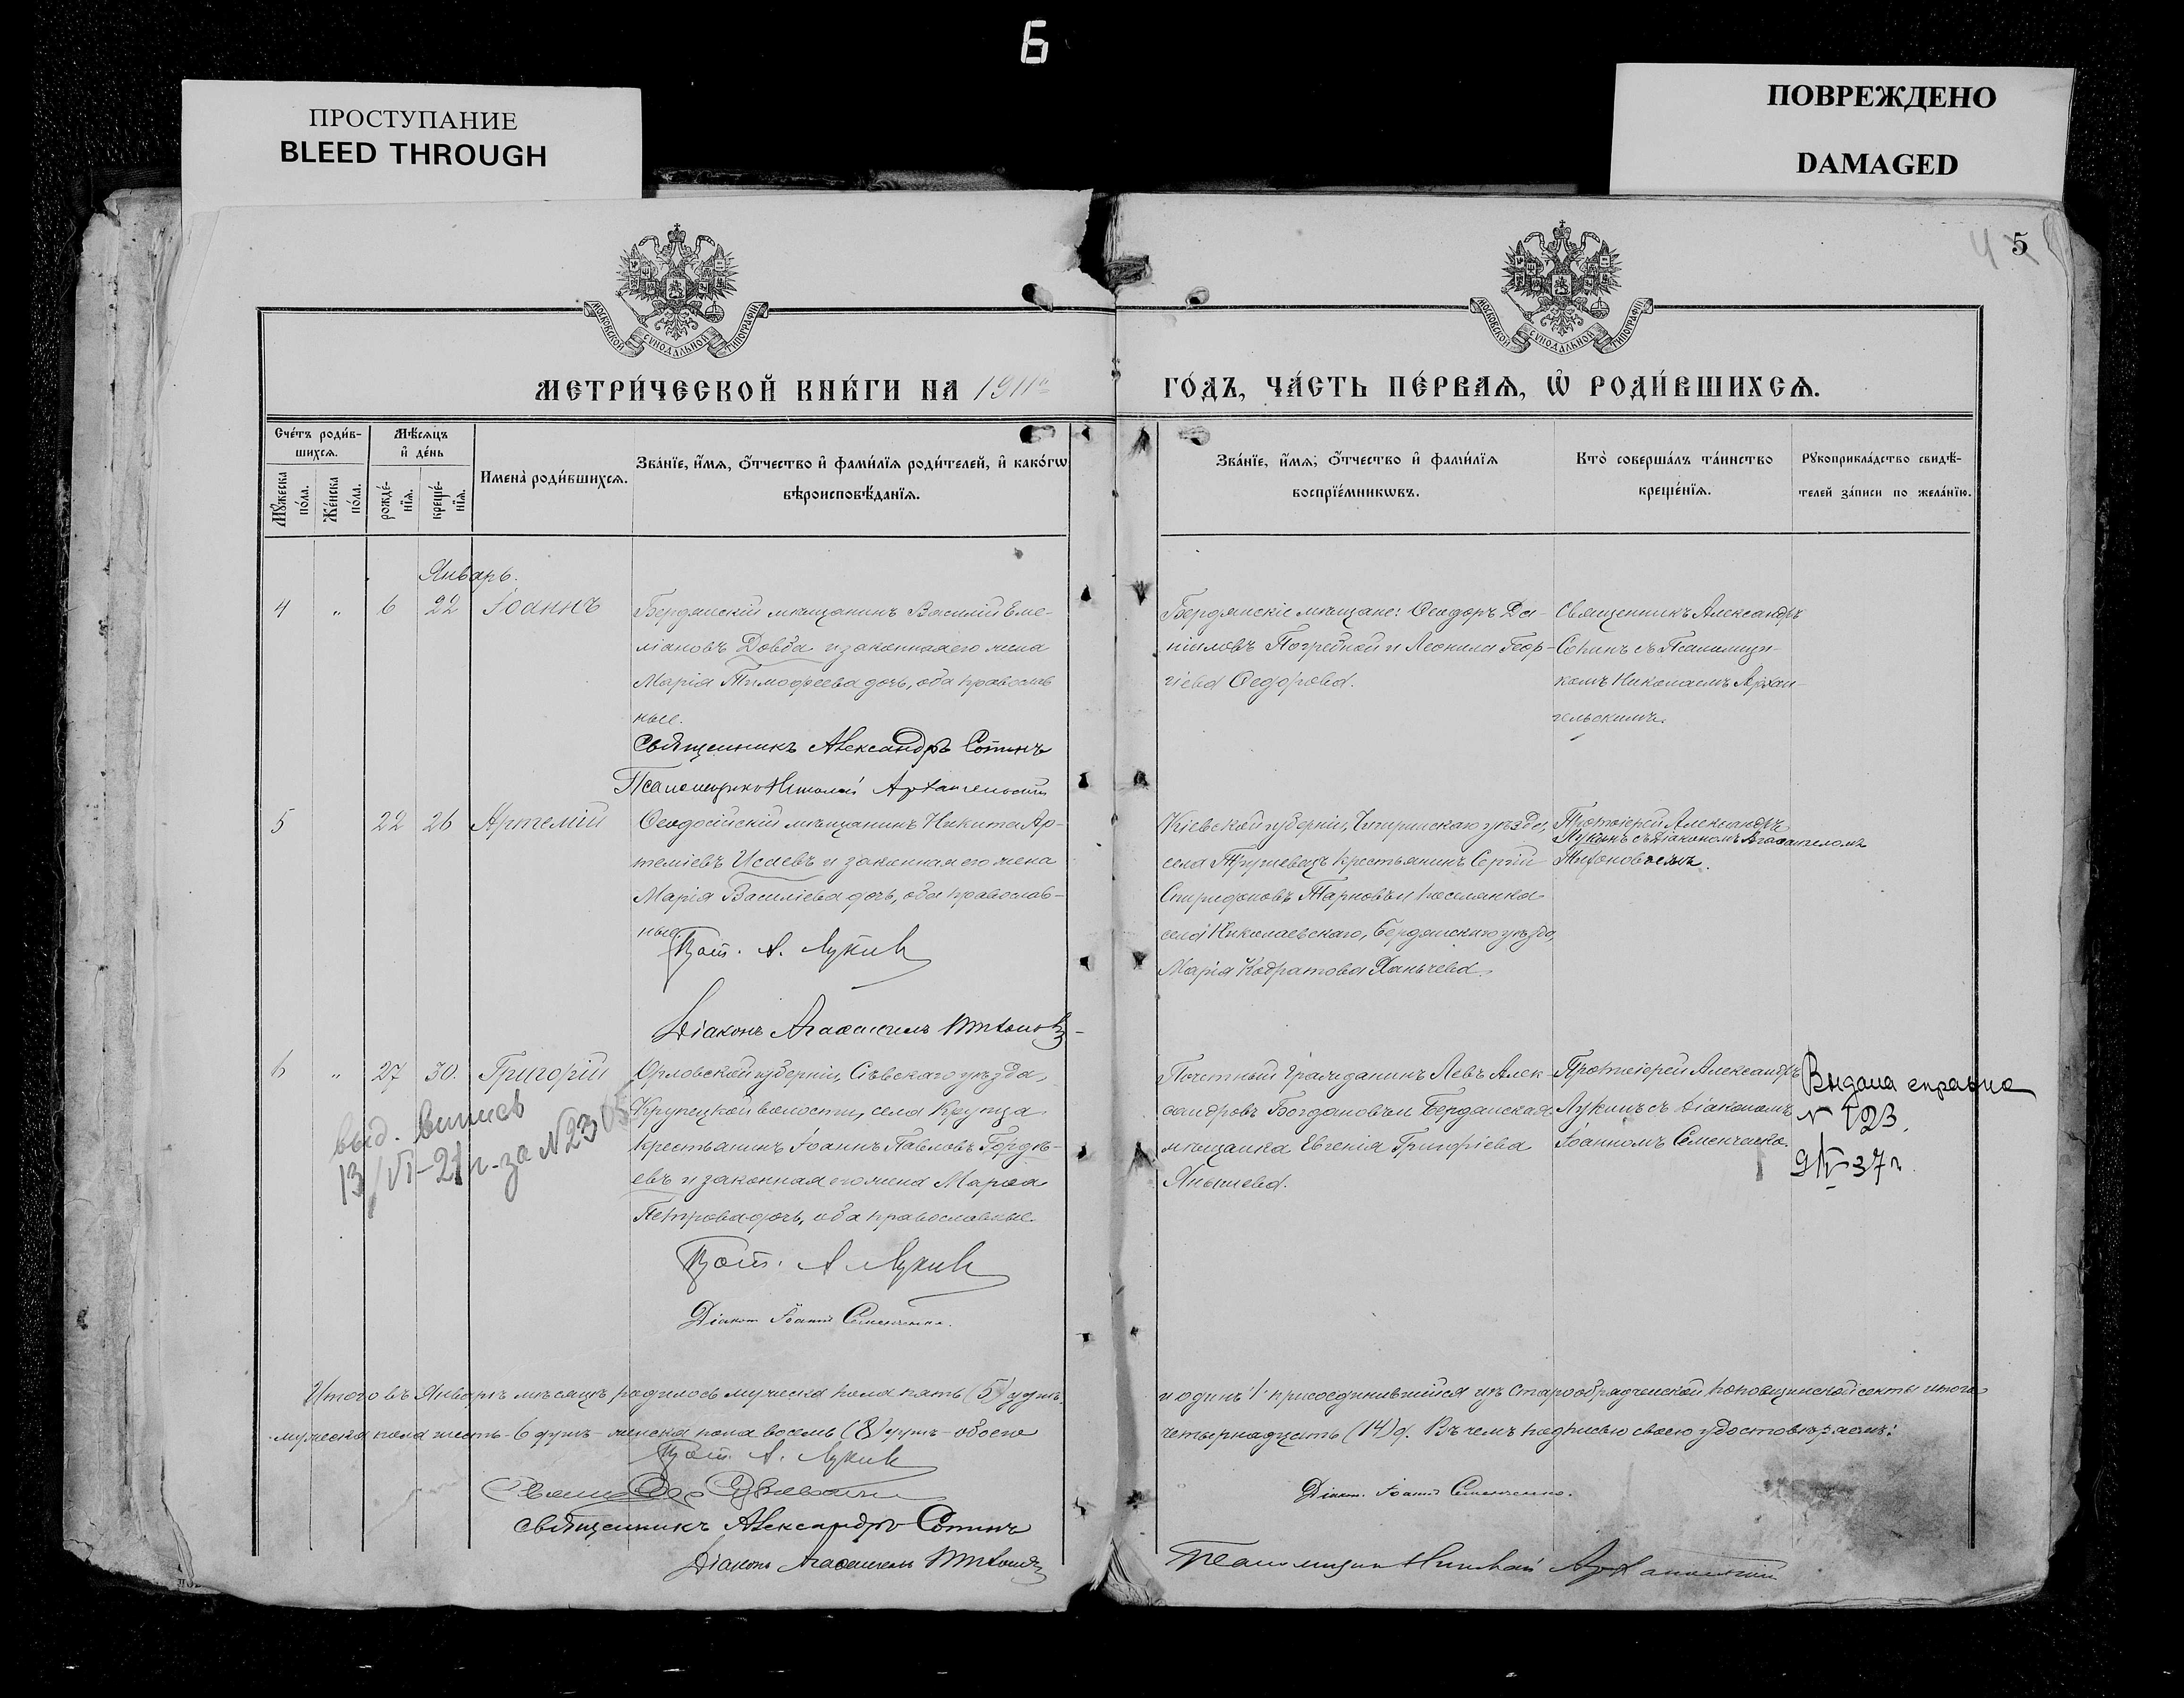 Б
ПРОСТУПАНИЕ
BLEED THROUGH
ПОВРЕЖДЕНО
DAMAGED
5
4
МОСКОВСКОЙ СУНОДАЛЬНОЙ ТИПОГРАФІИ
МОСКОВСКОЙ СУНОДАЛЬНОЙ ТИПОГРАФІИ
МЕТРИ́ЧЕСКОЙ КНИ́ГИ НА 1911й
ГО́ДЪ, ЧА́СТЬ ПЕ́РВАѦ, Ѡ҆ РОДИ́ВШИХСѦ.
Сче́тъ роди́в-
шихсѧ.
Мꙋ́жеска по́ла.
Же́нска по́ла.
Мѣ́сѧцъ
и҆ де́нь
рожде́-нїѧ.
креще́-нїѧ.
И҆мена̀ роди́вшихсѧ.
Зва́нїе, и҆́мѧ, ѻ҆́тчество и҆ фами́лїѧ роди́телей, и҆ како́гѡ
вѣроисповѣ́данїѧ.
Зва́нїе, и҆́мѧ, ѻ҆́тчество и҆ фами́лїѧ
воспрїе́мникѡвъ.
Кто̀ соверша́лъ та́инство
креще́нїѧ.
Рꙋкоприкла́дство свидѣ́-
телей за́писи по жела́нїю.
Январь.
4 " 6 22 Іоаннъ
Бердянскій мѣщанинъ Василій Еме-
ліановъ Довба и законная его жена
Марія Тимофеева дочь, оба православ
ные.
Священникъ Александръ Сопинъ
Псаломщикъ Николай Архангельскій
Бердянскіе мѣщане: Ѳеодоръ Да-
ніиловъ Погребной и Леонила Геор-
гіева Ѳедорова.
Священникъ Александръ
Сопинъ съ Псаломщи-
комъ Николаемъ Архан-
гельскимъ.
5 22 26 Артемій
Ѳеодосійскій мѣщанинъ Никита Ар-
теміевъ Исаевъ и законная его жена
Марія Василіева дочь, оба православ-
ные.
Прот. А. Лукинъ
Діаконъ Агаѳангелъ Тихоновъ
Кіевской губерніи, Чигиринскаго уѣзда,
села Трушевецъ крестьянинъ Сергій
Спиридоновъ Тарновъ и поселянка
села Николаевскаго, Бердянскаго уѣзда,
Марія Кодратова Ханычева.
Протоіерей Александръ
Лукинъ съ діакономъ Агаѳангеломъ
Тихоновымъ.
6 " 27 30. Григорій
Орловской губерніи, Сѣвскаго уѣзда,
Крупецкой волости, села Крупца
крестьянинъ Іоаннъ Павловъ Гордѣ-
евъ и законная его жена Марѳа
Петрова дочь, оба православные.
Прот. А. Лукинъ
Діаконъ Іоаннъ Семенченко.
выд. выпись
13/VI-21 г. за N 23
Почетный гражданинъ Левъ Алек-
сандровъ Богдановъ и Бердянская
мѣщанка Евгенія Григоріева
Янышева.
Протоіерей Александръ
Лукинъ съ діакономъ
Іоанномъ Семенченко.
Выдана справка
N 123.
9/IV-37 г.
Итого въ Январѣ мѣсяцѣ родилось мужеска пола пять (5) душъ
мужеска пола шесть - 6 душъ - женска пола восемь (8) душъ - обоего
и одинъ 1 присоединившійся изъ старообрядческой поповщинской секты итого
четырнадцать (14) д. Въ чемъ подписью своею удостовѣряемъ:
Прот. А. Лукинъ
Священникъ Александръ Сопинъ
Діаконъ Агаѳангелъ Тихоновъ
Діакон. Іоаннъ Семенченко.
Псаломщикъ Николай Архангельскій